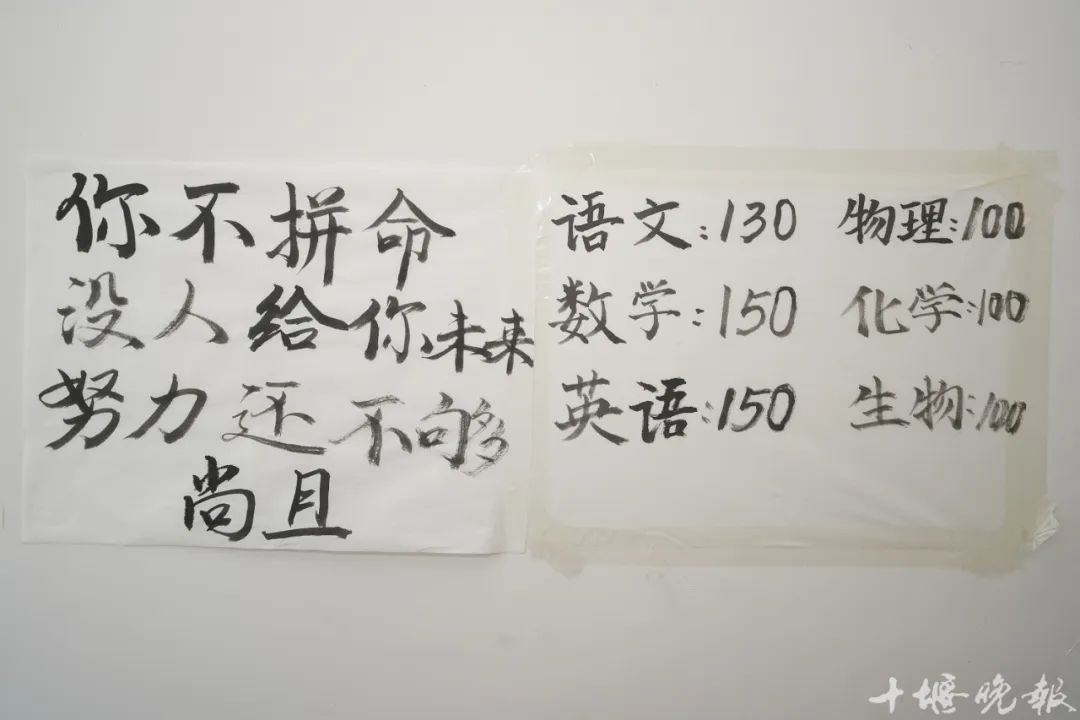 你不拼命
没人给你未来
努力还不够
尚且
语文:130 物理:100
数学:150 化学:100
英语:150 生物:100
十堰晚报